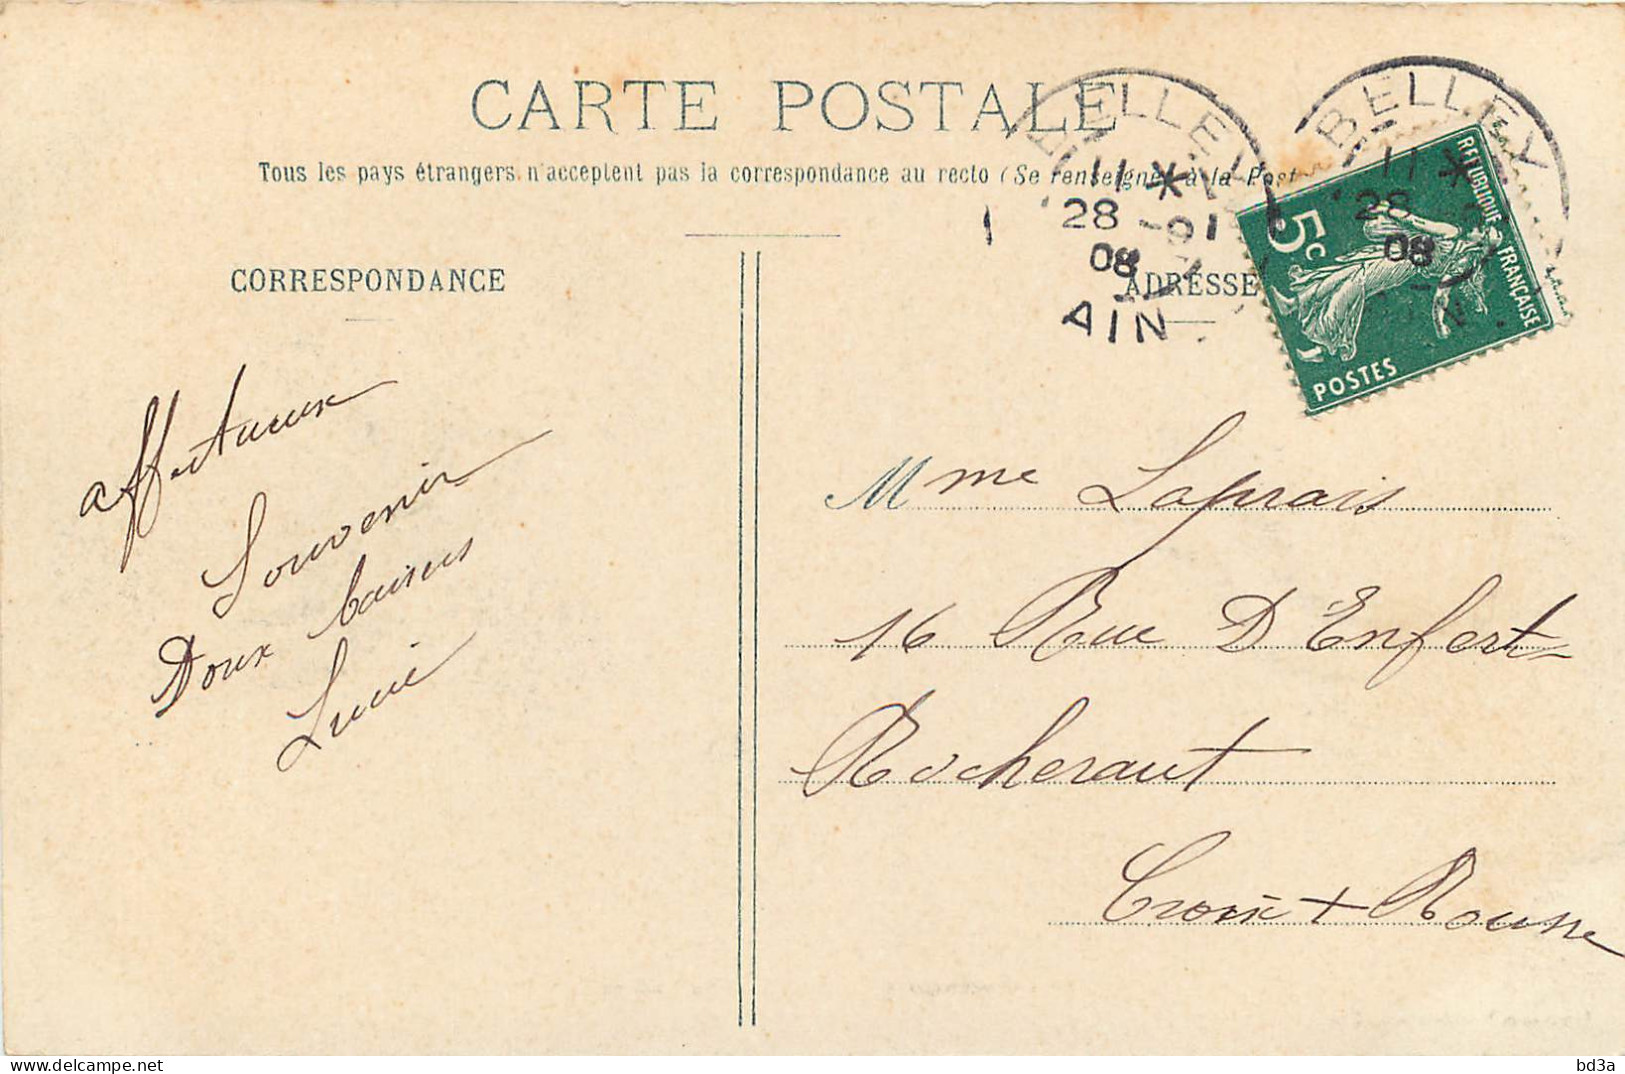 CARTE POSTALE
Tous les pays étrangers n'acceptent pas la correspondance au recto (Se renseigner à la Post
CORRESPONDANCE
ADRESSE
BELLEY
11 *
28
08
AIN
BELLEY
11 *
28
08
REPUBLIQUE FRANÇAISE
5c
POSTES
affectueux
Souvenir
Doux baisers
Lucie
Mme Laprais
16 Rue D'Enfert-
Rocheraut
Croix + Rousse
bd3a